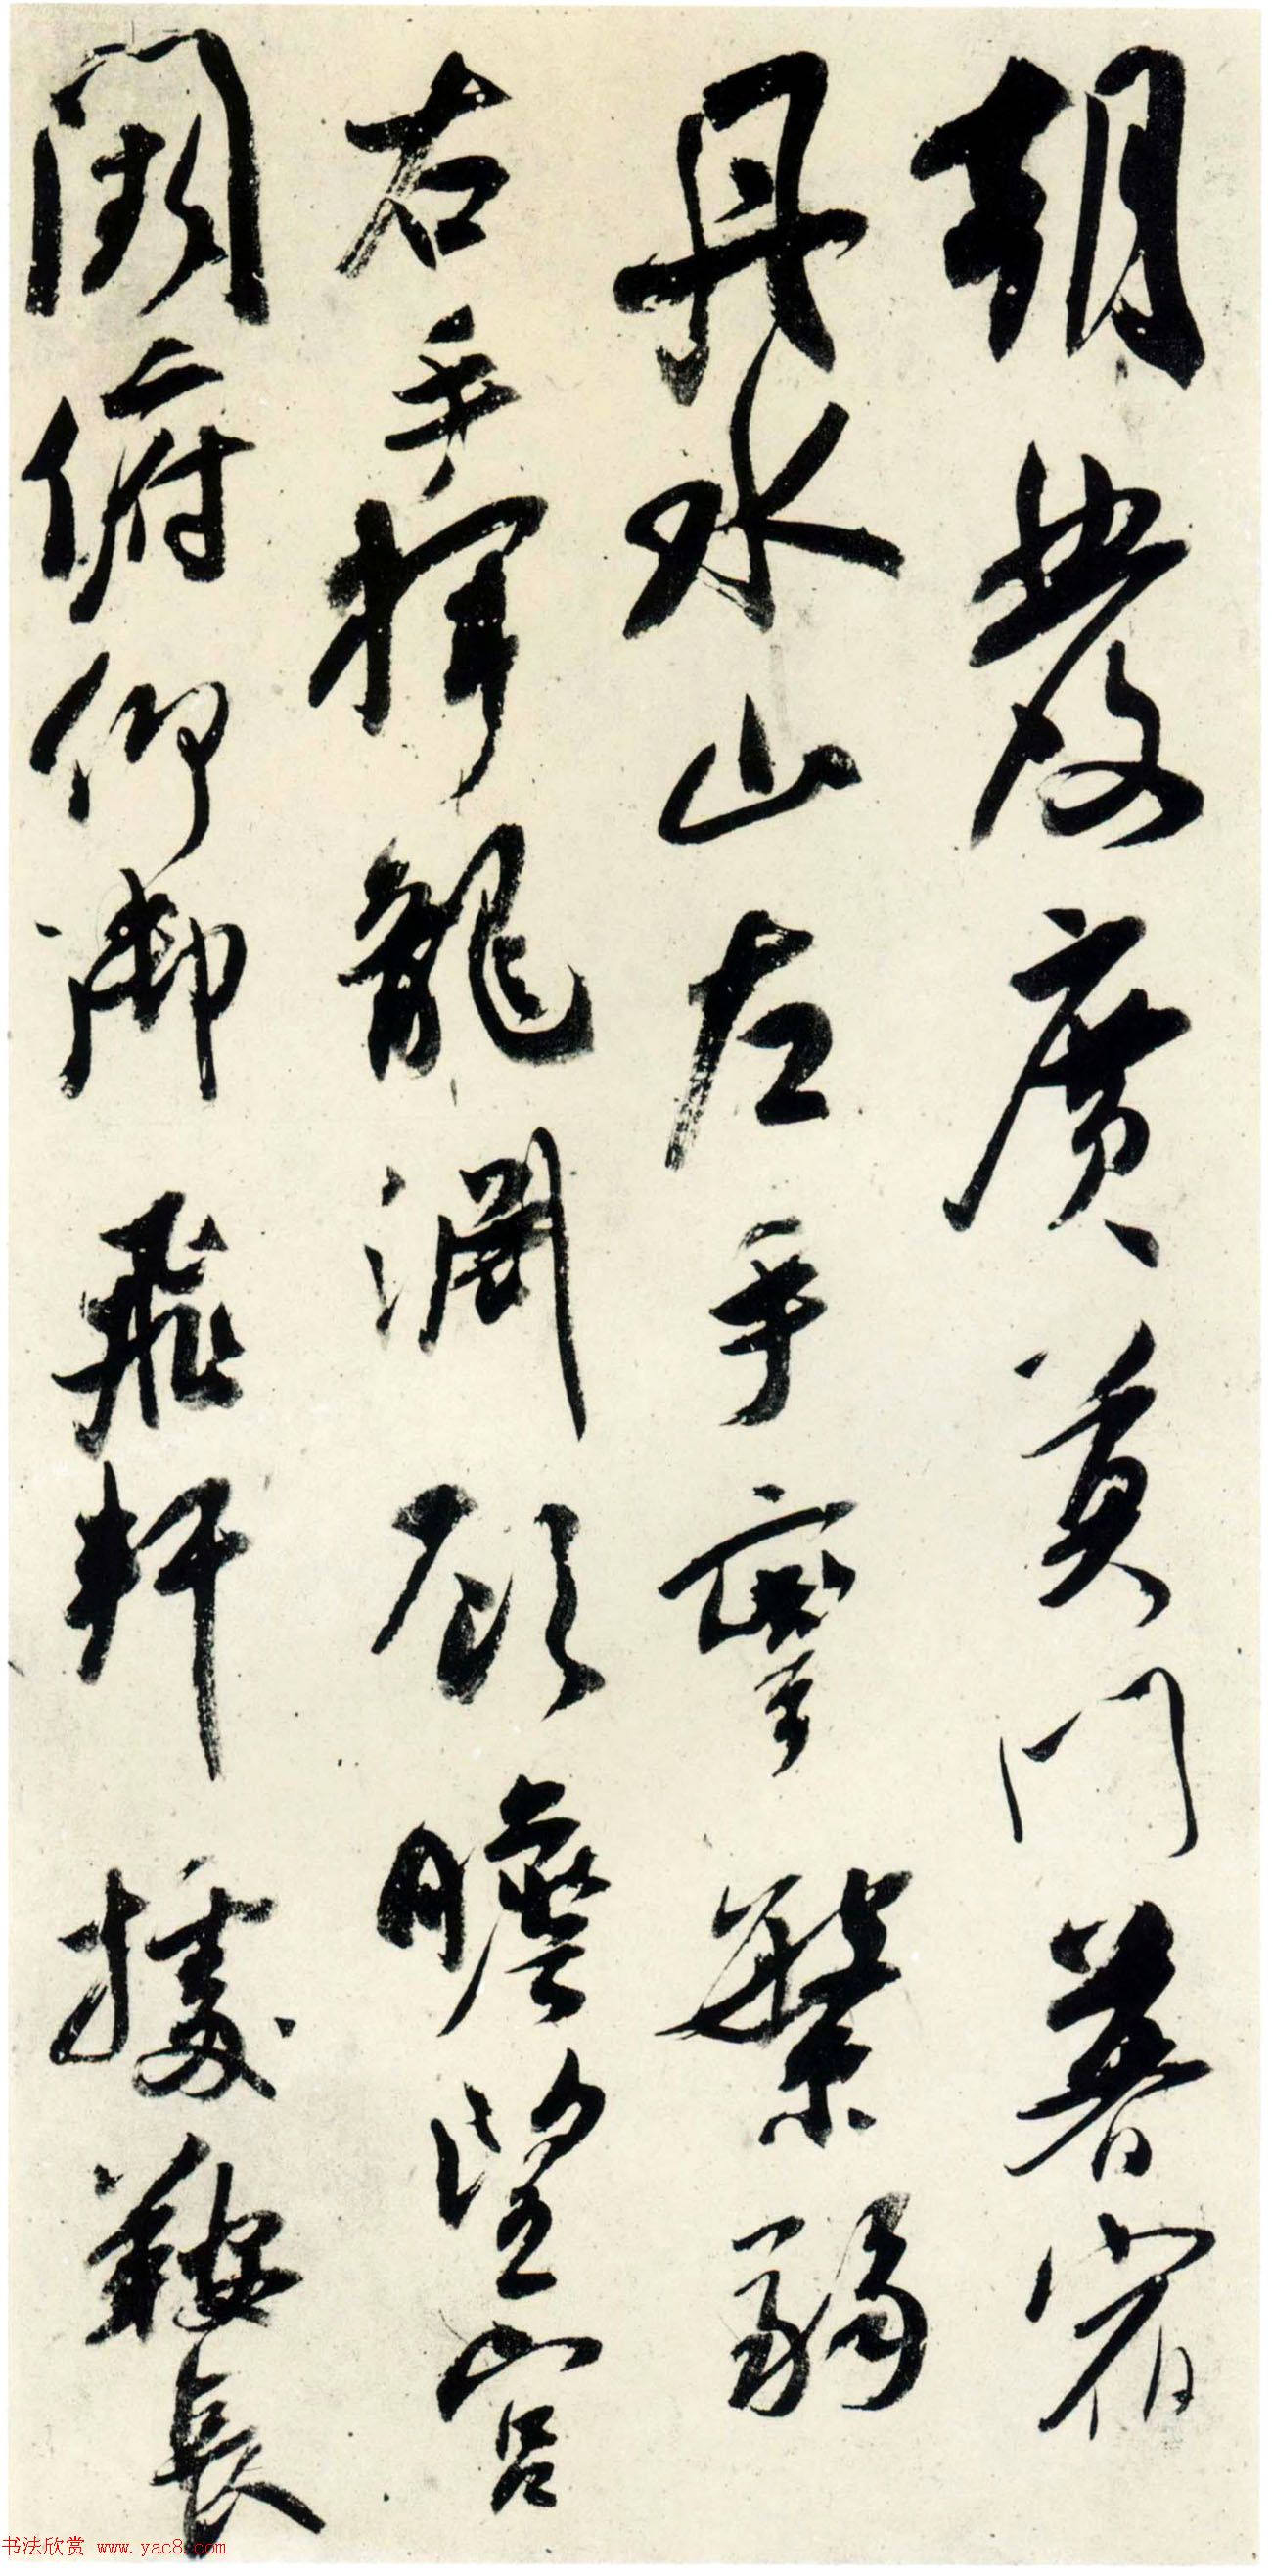 朝發廣莫門暮宿
丹水山左手彎繁弱
右手揮龍淵顧瞻望宮
闕俯仰御飛軒據鞍長
书法欣赏 www.yac8.com